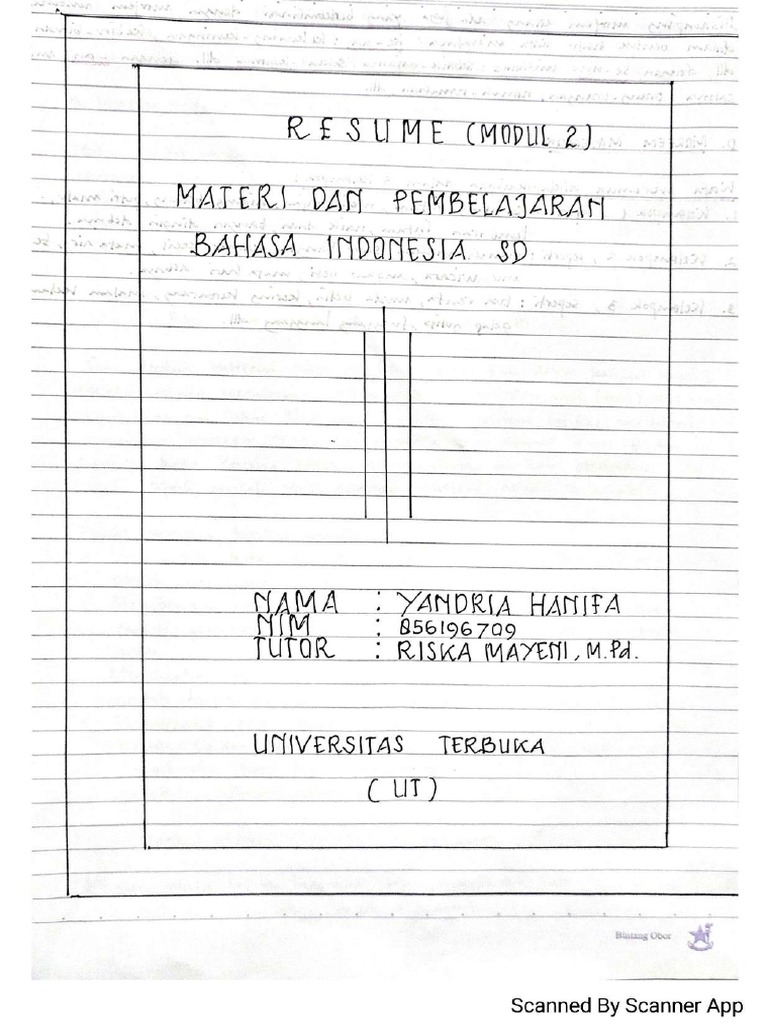 RESUME (MODUL 2)
MATERI DAN PEMBELAJARAN
BAHASA INDONESIA SD
NAMA : YANDRIA HANIFA
NIM : 856196709
TUTOR : RISKA MAYENI, M.Pd.
UNIVERSITAS TERBUKA
(UT)
Bintang Obor
Scanned By Scanner App